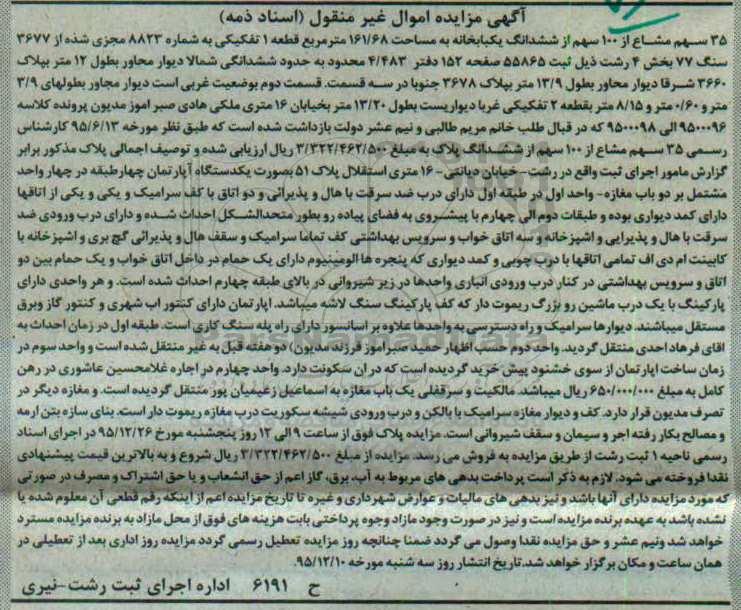 آگهی مزایده اموال غیر منقول (اسناد ذمه)
۳۵ سهم مشاع از ۱۰۰ سهم از ششدانگ یکبابخانه به مساحت ۱۶۱/۶۸ مترمربع قطعه ۱ تفکیکی به شماره ۸۸۲۳ مجزی شده از ۳۶۷۷
سنگ ۷۷ بخش ۴ رشت ذیل ثبت ۵۵۸۶۵ صفحه ۱۵۲ دفتر ۴/۴۸۳ محدود به حدود ششدانگی شمالا دیوار محاور بطول ۱۲ متر بپلاک
۳۶۶۰ شرقا دیوار محاور بطول ۱۳/۹ متر بپلاک ۳۶۷۸ جنوبا در سه قسمت. قسمت دوم بوضعیت غربی است دیوار مجاور بطولهای ۳/۹
متر و ۰/۶۰ متر و ۸/۱۵ متر بقطعه ۲ تفکیکی غربا دیواریست بطول ۱۳/۲۰ متر بخیابان ۱۶ متری ملکی هادی صبر اموز مدیون پرونده کلاسه
۹۵۰۰۰۹۶ الی ۹۵۰۰۰۹۸ که در قبال طلب خانم مریم طالبی و نیم عشر دولت بازداشت شده است که طبق نظر مورخه ۹۵/۶/۱۳ کارشناس
رسمی ۳۵ سهم مشاع از ۱۰۰ سهم از ششدانگ پلاک به مبلغ ۳/۳۲۲/۴۶۲/۵۰۰ ریال ارزیابی شده و توصیف اجمالی پلاک مذکور برابر
گزارش مامور اجرای ثبت واقع در رشت- خیابان دیانتی- ۱۶ متری استقلال پلاک ۵۱ بصورت یکدستگاه آپارتمان چهارطبقه در چهار واحد
مشتمل بر دو باب مغازه- واحد اول در طبقه اول دارای درب ضد سرقت با هال و پذیرائی و دو اتاق با کف سرامیک و یکی و یکی از اتاقها
دارای کمد دیواری بوده و طبقات دوم الی چهارم با پیشروی به فضای پیاده رو بطور متحدالشکل احداث شده و دارای درب ورودی ضد
سرقت با هال و پذیرایی و اشپزخانه و سه اتاق خواب و سرویس بهداشتی کف تماما سرامیک و سقف هال و پذیرائی گچ بری و اشپزخانه با
کابینت ام دی اف تمامی اتاقها با درب چوبی و کمد دیواری که پنجره ها الومینیوم دارای یک حمام در داخل اتاق خواب و یک حمام بین دو
اتاق و سرویس بهداشتی در کنار درب ورودی انباری واحدها در زیر شیروانی در بالای طبقه چهارم احداث شده است. و هر واحدی دارای
پارکینگ با یک درب ماشین رو بزرگ ریموت دار که کف پارکینگ سنگ لاشه میباشد. اپارتمان دارای کنتور اب شهری و کنتور گاز وبرق
مستقل میباشند. دیوارها سرامیک و راه دسترسی به واحدها علاوه بر اسانسور دارای راه پله سنگ کاری است. طبقه اول در زمان احداث به
اقای فرهاد احدی منتقل گردید. واحد دوم حسب اظهار حمید صبراموز فرزند مدیون) دو هفته قبل به غیر منتقل شده است و واحد سوم در
زمان ساخت اپارتمان از سوی خشنود پیش خرید گردیده است که در ان سکونت دارد. واحد چهارم در اجاره غلامحسین عاشوری در رهن
کامل به مبلغ ۶۵۰/۰۰۰/۰۰۰ ریال میباشد. مالکیت و سرقفلی یک باب مغازه به اسماعیل زعیمیان پور منتقل گردیده است. و مغازه دیگر در
تصرف مدیون قرار دارد. کف و دیوار مغازه سرامیک با بالکن و درب ورودی شیشه سکوریت درب مغازه ریموت دار است. بنای سازه بتن ارمه
و مصالح بکار رفته اجر و سیمان و سقف شیروانی است. مزایده پلاک فوق از ساعت ۹ الی ۱۲ روز پنجشنبه مورخ ۹۵/۱۲/۲۶ در اجرای اسناد
رسمی ناحیه ۱ ثبت رشت از طریق مزایده به فروش می رسد. مزایده از مبلغ ۳/۳۲۲/۴۶۲/۵۰۰ ریال شروع و به بالاترین قیمت پیشنهادی
نقدا فروخته می شود. لازم به ذکر است پرداخت بدهی های مربوط به آب، برق، گاز اعم از حق انشعاب و یا حق اشتراک و مصرف در صورتی
که مورد مزایده دارای آنها باشد و نیز بدهی های مالیات و عوارض شهرداری و غیره تا تاریخ مزایده اعم از اینکه رقم قطعی آن معلوم شده یا
نشده باشد به عهده برنده مزایده است و نیز در صورت وجود مازاد وجوه پرداختی بابت هزینه های فوق از محل مازاد به برنده مزایده مسترد
خواهد شد ونیم عشر و حق مزایده نقدا وصول می گردد ضمنا چنانچه روز مزایده تعطیل رسمی گردد مزایده روز اداری بعد از تعطیلی در
همان ساعت و مکان برگزار خواهد شد.تاریخ انتشار روز سه شنبه مورخه ۹۵/۱۲/۱۰.
ح ۶۱۹۱ اداره اجرای ثبت رشت-نیری